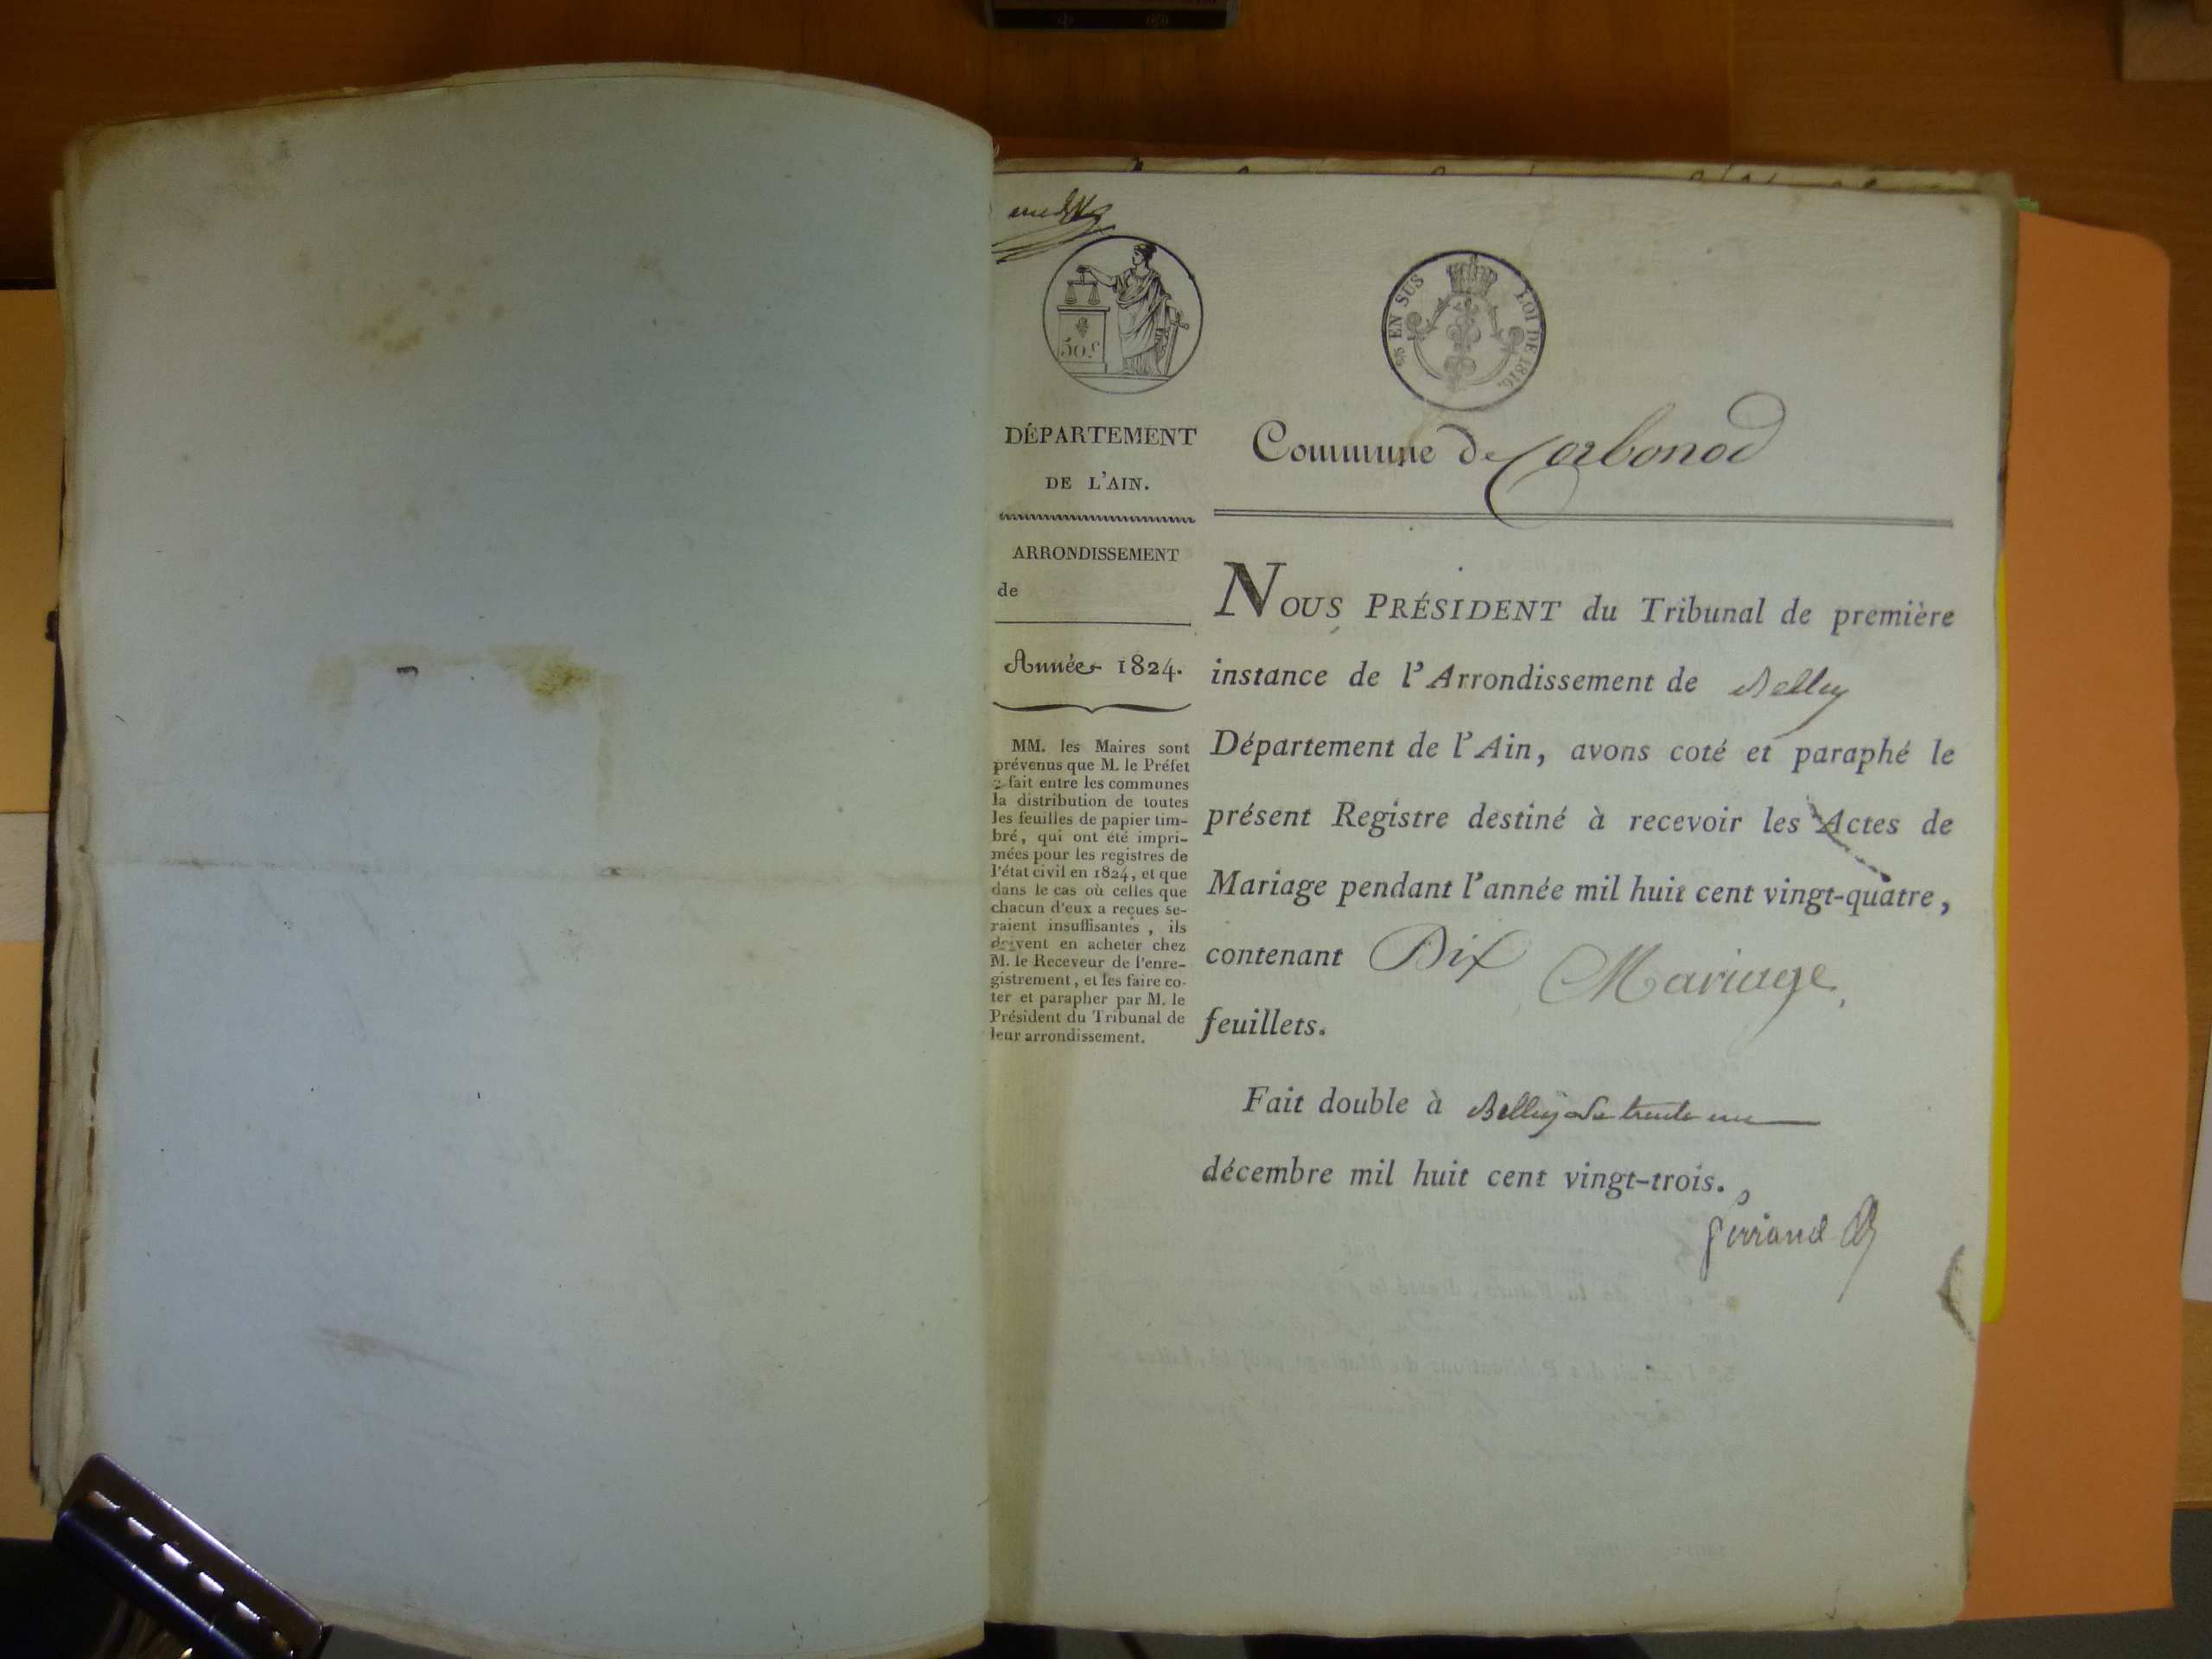 50 c
EN SUS LOI DE 1816.
DÉPARTEMENT
DE L'AIN.
ARRONDISSEMENT
de
Année 1824.
MM. les Maires sont
prévenus que M. le Préfet
a fait entre les communes
la distribution de toutes
les feuilles de papier tim-
bré, qui ont été impri-
mées pour les registres de
l'état civil en 1824, et que
dans le cas où celles que
chacun d'eux a reçues se-
raient insuffisantes, ils
doivent en acheter chez
M. le Receveur de l'enre-
gistrement, et les faire co-
ter et parapher par M. le
Président du Tribunal de
leur arrondissement.
Commune de Corbonod
NOUS PRÉSIDENT du Tribunal de première
instance de l'Arrondissement de Belley
Département de l'Ain, avons coté et paraphé le
présent Registre destiné à recevoir les Actes de
Mariage pendant l'année mil huit cent vingt-quatre,
contenant Dix Mariage,
feuillets.
Fait double à Belley Le trente un
décembre mil huit cent vingt-trois.